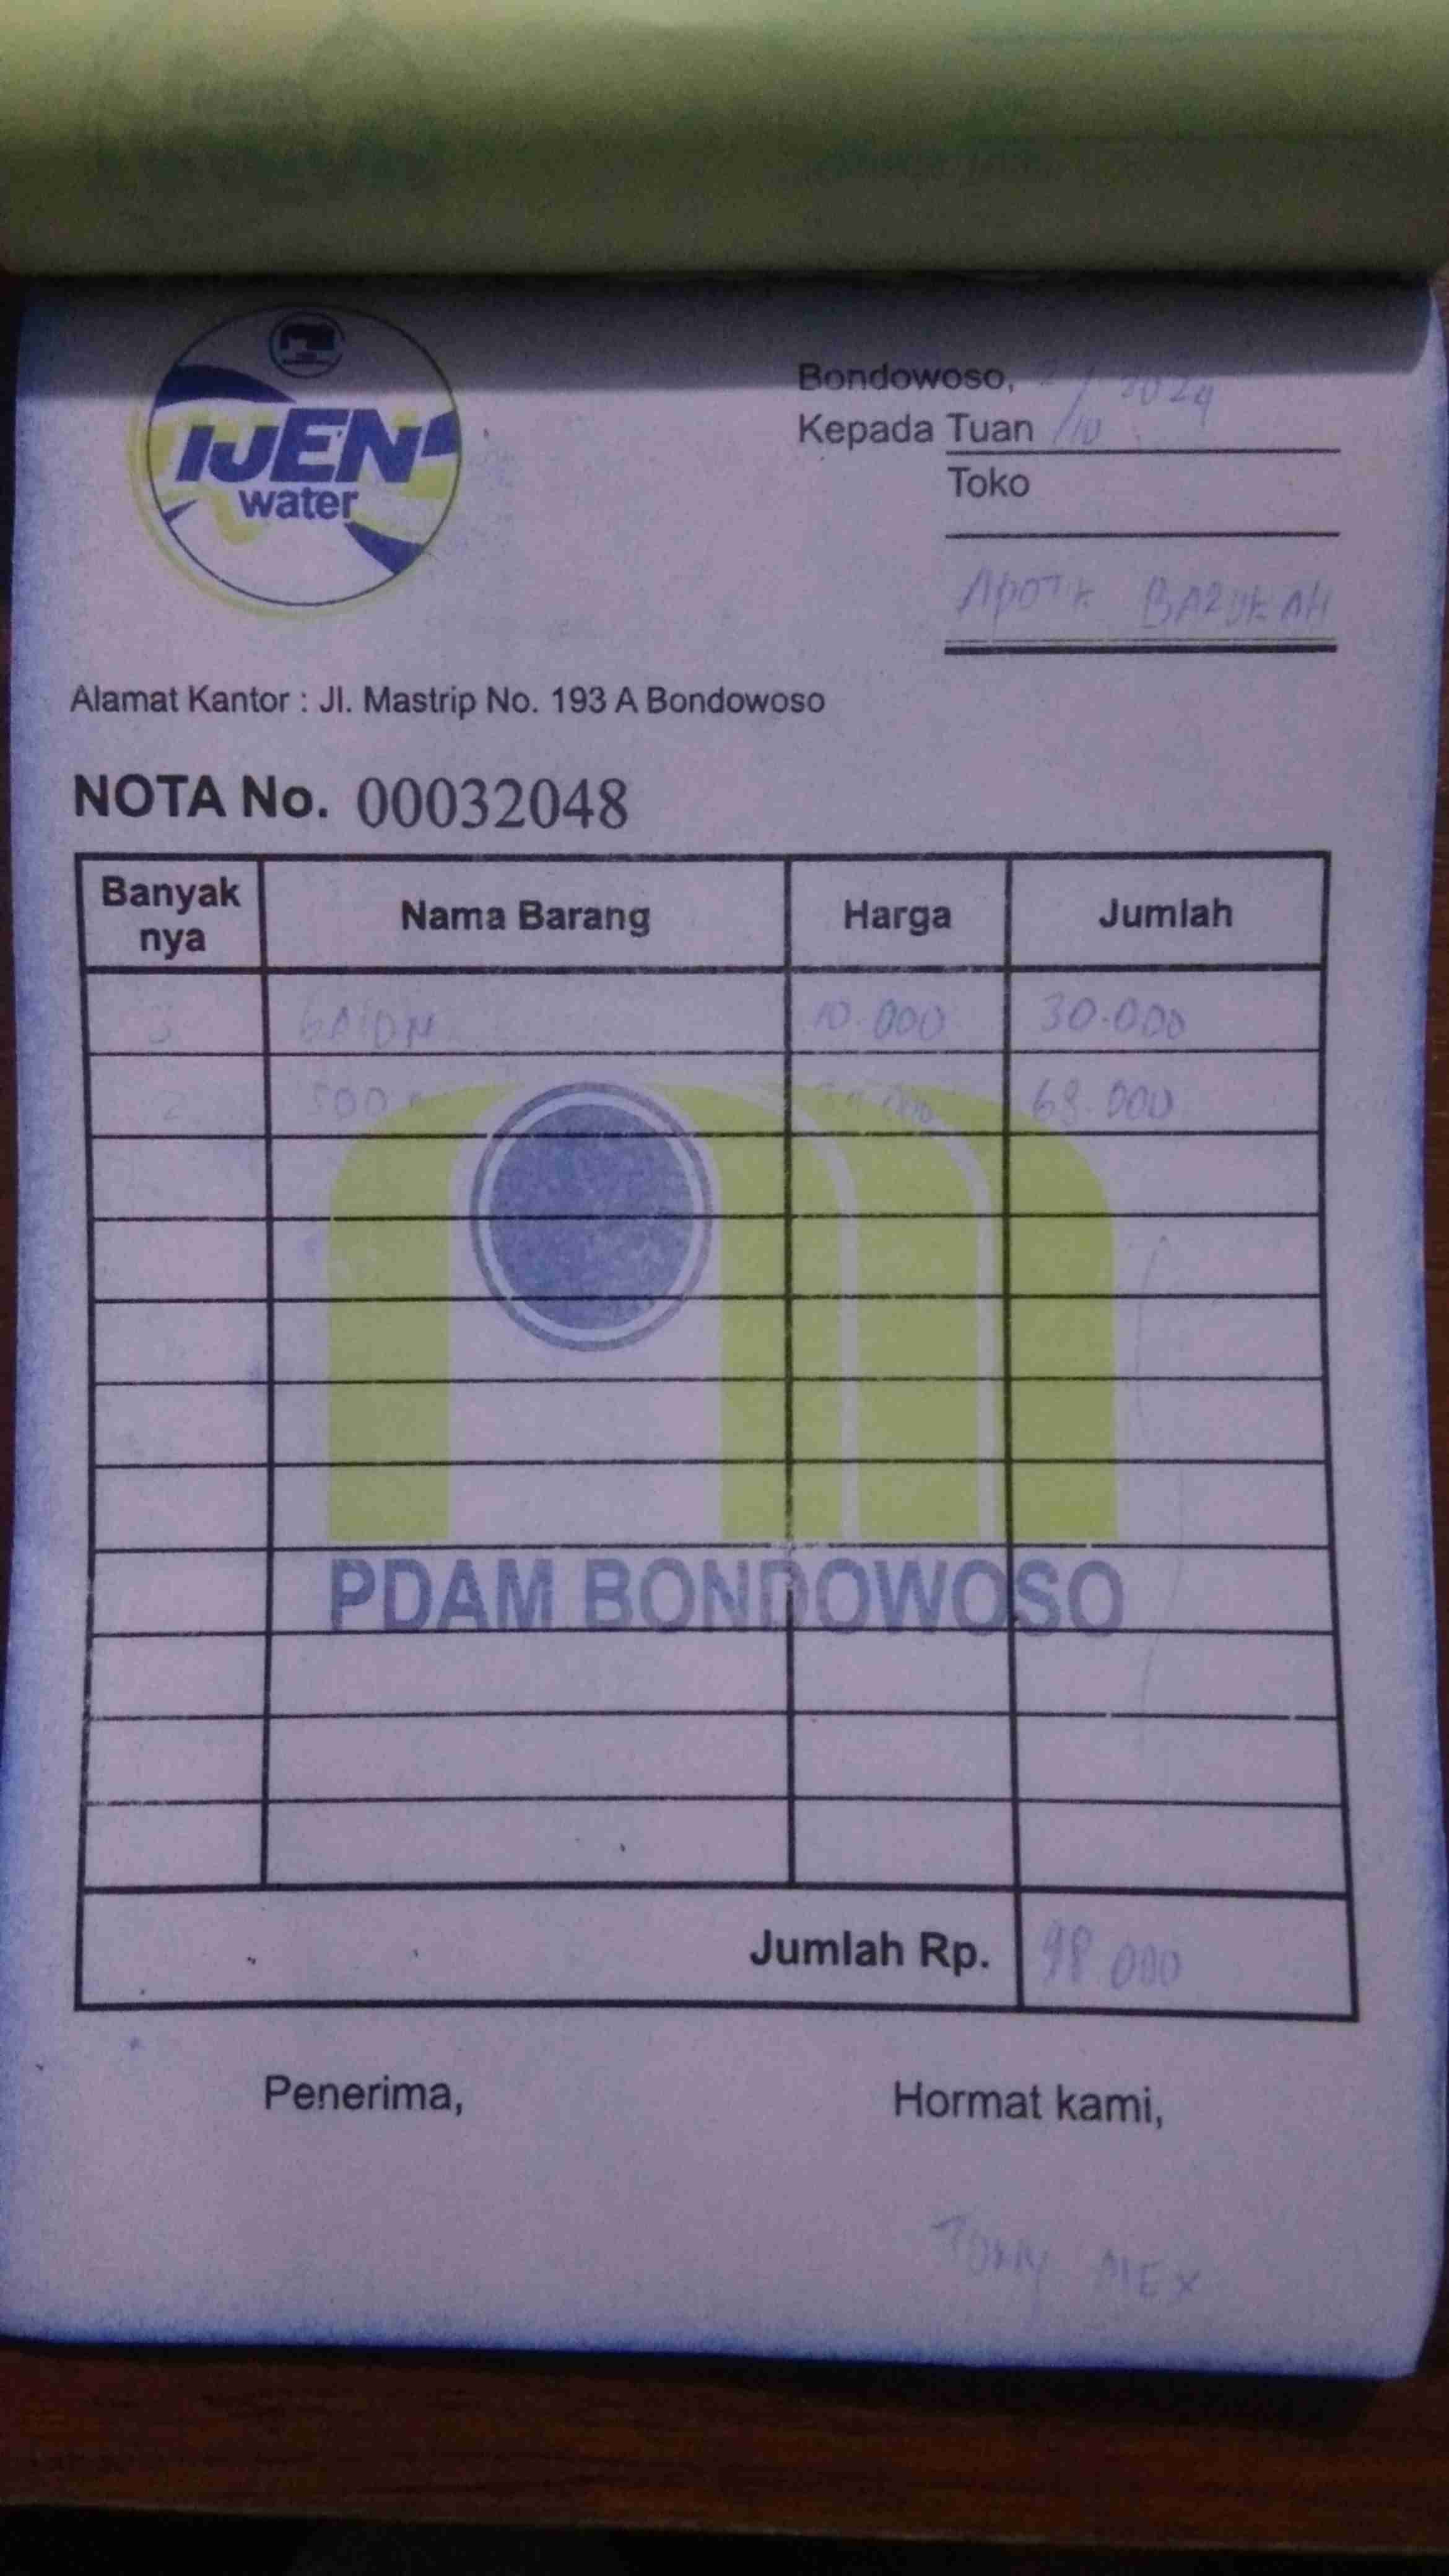 IJEN
water
Bondowoso, 2/10 2024
Kepada Tuan
Toko
APOTIK BARUKAH
Alamat Kantor : Jl. Mastrip No. 193 A Bondowoso
NOTA No. 00032048
Banyak nya Nama Barang Harga Jumlah
3 GALON 10.000 30.000
2 500 34.000 68.000
PDAM BONDOWOSO
Jumlah Rp. 98.000
Penerima, Hormat kami,
ALEX